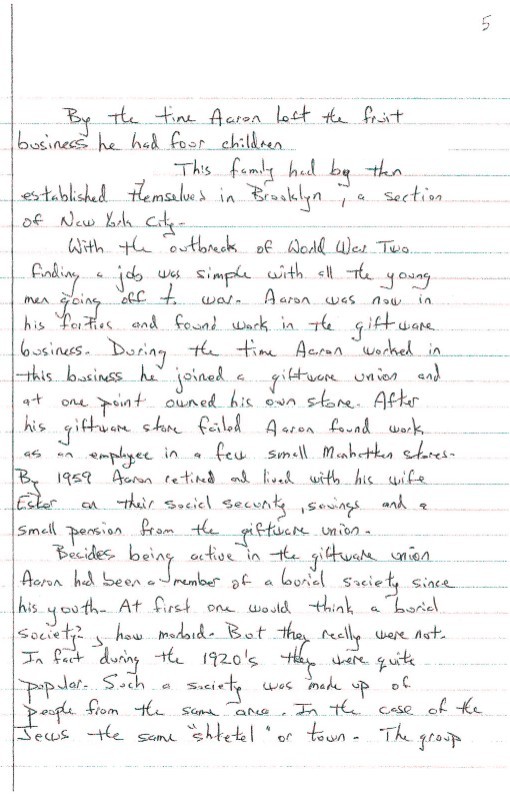 5
By the time Aaron left the fruit
business he had four children
This family had by then
established themselves in Brooklyn, a section
of New York City.
With the outbreak of World War Two
finding a job was simple with all the young
men going off to war. Aaron was now in
his forties and found work in the giftware
business. During the time Aaron worked in
this business he joined a giftware union and
at one point owned his own store. After
his giftware store failed Aaron found work
as an employee in a few small Manhatten stores.
By 1959 Aaron retired and lived with his wife
Ester on their social security, savings and a
small pension from the giftware union.
Besides being active in the giftware union
Aaron had been a member of a burial society since
his youth. At first one would think a burial
society?, how morbid. But they really were not.
In fact during the 1920's they were quite
popular. Such a society was made up of
people from the same area. In the case of the
Jews the same "shtetel" or town. The group